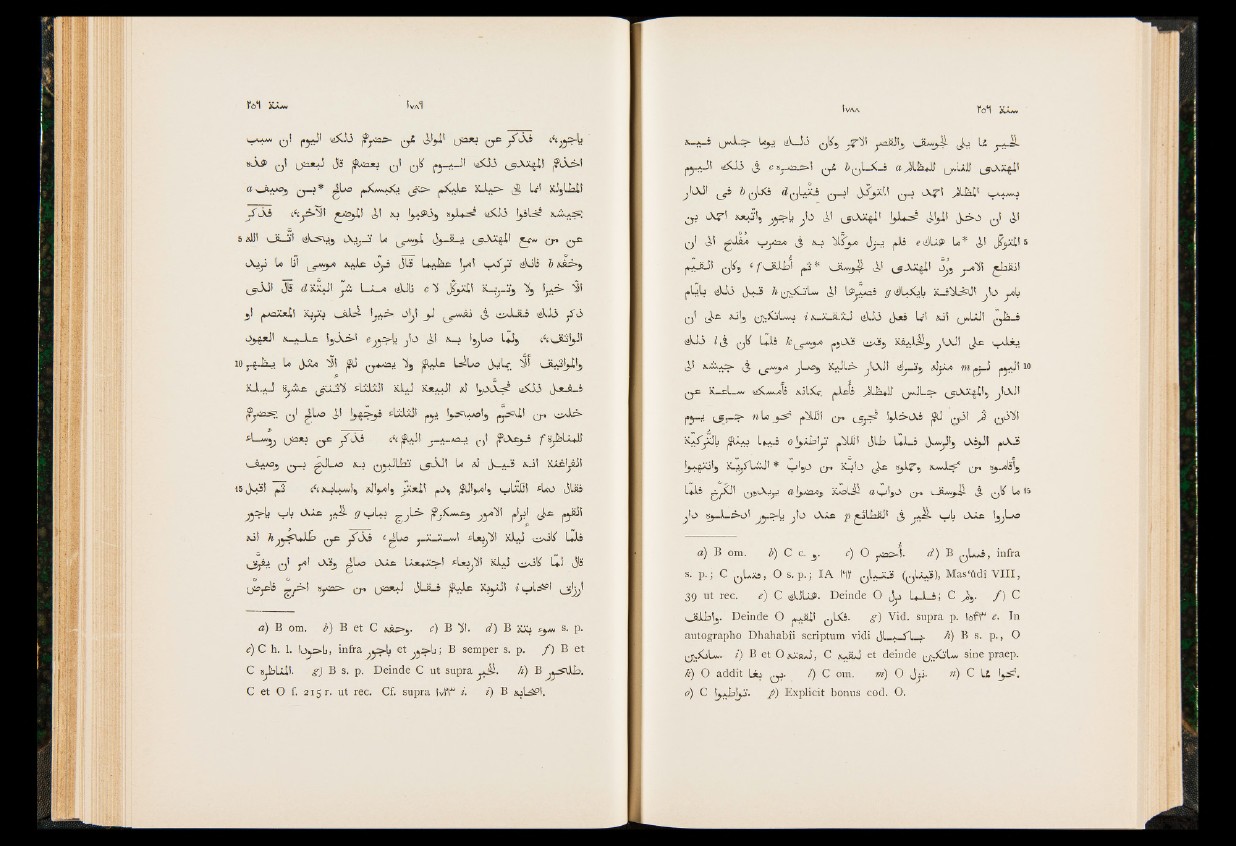 سنة ٢٥٦ ١٧٨٨
للحير مما يلى الجوسق والقصر الاحمر وكان ذلك يوما جلس فيه
المهتدى للناس للمظالم a فكان b ممن احضره c فى ذلك اليوم
بسبب المظالم احمد بن المتوكل ابن فتيان d فكان b فى الدار
الى ان دخل الموالى فحملوا المهتدى الى دار ياجور واتبعه احمد بن
5 المتوكل الى *ما هناك e فلم يزل موكلا به فى مضرب مفلح الى ان
انقطع الامر ورد المهتدى الى الجوسق *ثم اطلق f، وكان القيم
بامر دار الخلافة بايكباك g فصيرها الى ساتكين h قبل ذلك بايام
فظن الناس انه انما فعل ذلك لثقته i بساتكين وانه على ان
يغلب على الدار والخليفة وقت قدوم موسى k فلما كان فى l ذلك
10 اليوم لزم m منزله وترك الدار خالية وصار موسى فى جيشه الى
الدار والمهتدى جالس للمظالم فاعلم بمكانه فامسك ساعة عن
الاذن ثم اذن لهم فدخلوا فجرى من الكلام نحو ما n جرى يوم
قدم الوفد والرسل فلما طال الكلام تراطنوا o فيما بينهم بالتركية
واقاموه من مجلسه وحملوه على دابة من دواب *الشاكرية وانتهبوا
15 ما كان فى الجوسق من دواب a الخاصة ومضوا a يريدون الكرخ فلما
صاروا عند باب الحير فى القطائع p عند دار ياجور ادخلوه دار
a) B om. b) C c. و. c) O احضر. d) B فسان, infra
s. p.; C فتيان, O s. p.; IA ١٣٢ قتيان (قينان), Mas'ûdî VIII,
39 ut rec. e) C هنالك. Deinde O فلما يزل; C ولم. f) C
واطلق. Deinde O فكان القيم. g) Vid. supra p. ١٥٤٣ c. In
autographo Dhahabii scriptum vidi بـاـيـكـبـال. h) B s. p., O
ساتكين. i) B et O لمعنه, C لبقيه et deinde ساتكين sine praep.
k) O addit بن بغا. l) C om. m) O نزل. n) C نحوا مما.
o) C تواطيوا. p) Explicit bonus cod. O.
سنة ٢٥٦ ١٧٨٩
ياجور، فذكر عن بعض الموالى ممن حضرهم ذلك اليوم ان سبب
اخذهم المهتدى ذلك اليوم كان ان بعضهم قال لبعض ان هذه
المطاولة انما هى حيلة عليكم حتى يكبسكم صالح *بن وصيف a
بجيشه فخافوا ذلك فحملوه وذهبوا به الى الموضع الآخر، فذكر
5 عن من سمع المهتدى يقول لموسى ما تريد ويحك اتق الله
وخفه b فانك تركب امرا عظيما قال فرد عليه موسى انا ما نريد
الا خيرا ولا وتربة المتوكل لا c نالك منا شر البتة d قال الذى
ذكر ذلك فقلت فى نفسى لو اراد خيرا لحلف بتربة المعتصم او
الواثق، ولما صاروا به الى دار ياجور e اخذوا عليه العهود
10 والمواثيق الا يمايل صالحا عليهم ولا يضمر لهم الا مثل ما يظهر
ففعل ذلك فجددوا له البيعة ليلة الثلثاء لاثنتى عشرة ليلة
خلت من المحرم واصبحوا يوم الثلثاء فوجهوا الى صالح ان يحضرهم
للمناظرة f فوعدهم ان يصير اليهم، فذكر عن بعض رؤساء
الفراغنة انه قيل له ما الذى تطالبون به صالح بن وصيف
15 فقال دماء الكتاب واموالهم ودم المعتز وامواله واسبابه، ثم اقبل
القوم على ابرام الامور وعسكرهم خارج بباب g الحير عند باب ياجور
فلما كانت ليلة الاربعاء استتر صالح، فذكر عن طلمجور h انه
قال لما كانت ليلة الاربعاء اجتمعنا عند صالح وقد امر ان يفرق
ارزاق اصحاب i النوبة عليهم فقال لبعض من حضره اخرج فاعرض
a) B om. b) B et C وحقه. c) B الا. d) B سوء بتة s. p.
e) C h. l. باجورا, infra ياجور et باجور; B semper s. p. f) B et
C المناظرة. g) B s. p. Deinde C ut supra الحير. h) B طلمجور.
C et O f. 215 r. ut rec. Cf. supra ١٧٢٣ i. i) B اصحابه.